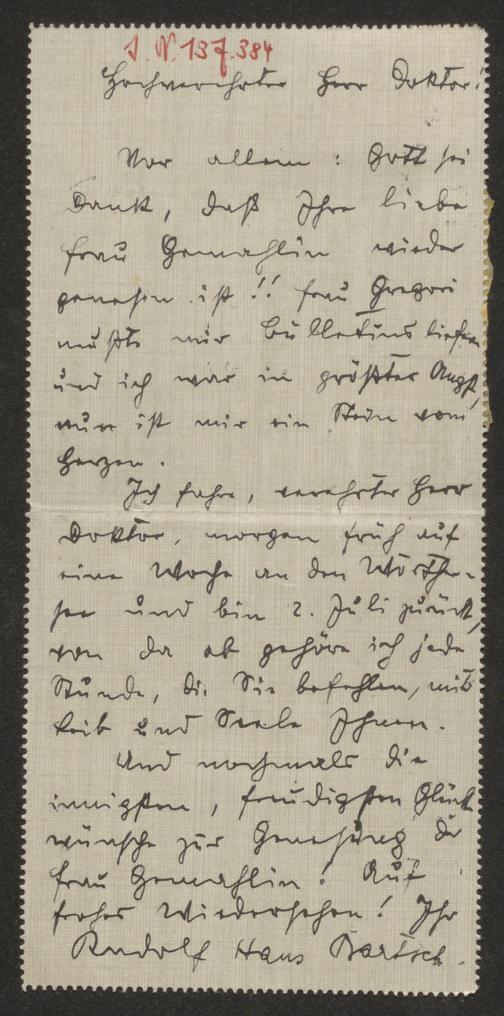 I. N. 137.384
Hochverehrter Herr Doktor!
Vor allem: Gott sei
Dank, daß Ihre liebe
Frau Gemahlin wieder
genesen ist!! Frau Gregori
mußte mir Bulletins liefern
und ich war in größter Angst,
nun ist mir ein Stein vom
Herzen.
Ich fahre, verehrter Herr
Doktor, morgen früh auf
eine Woche an den Wörther-
see und bin 2. Juli zurück,
von da ab gehöre ich jede
Stunde, die Sie befehlen, mit
Leib und Seele Ihnen.
Und nochmals die
innigsten, freudigsten Glück-
wünsche zur Genesung der
Frau Gemahlin! Auf
frohes Wiedersehen! Ihr
Rudolf Hans Bartsch.